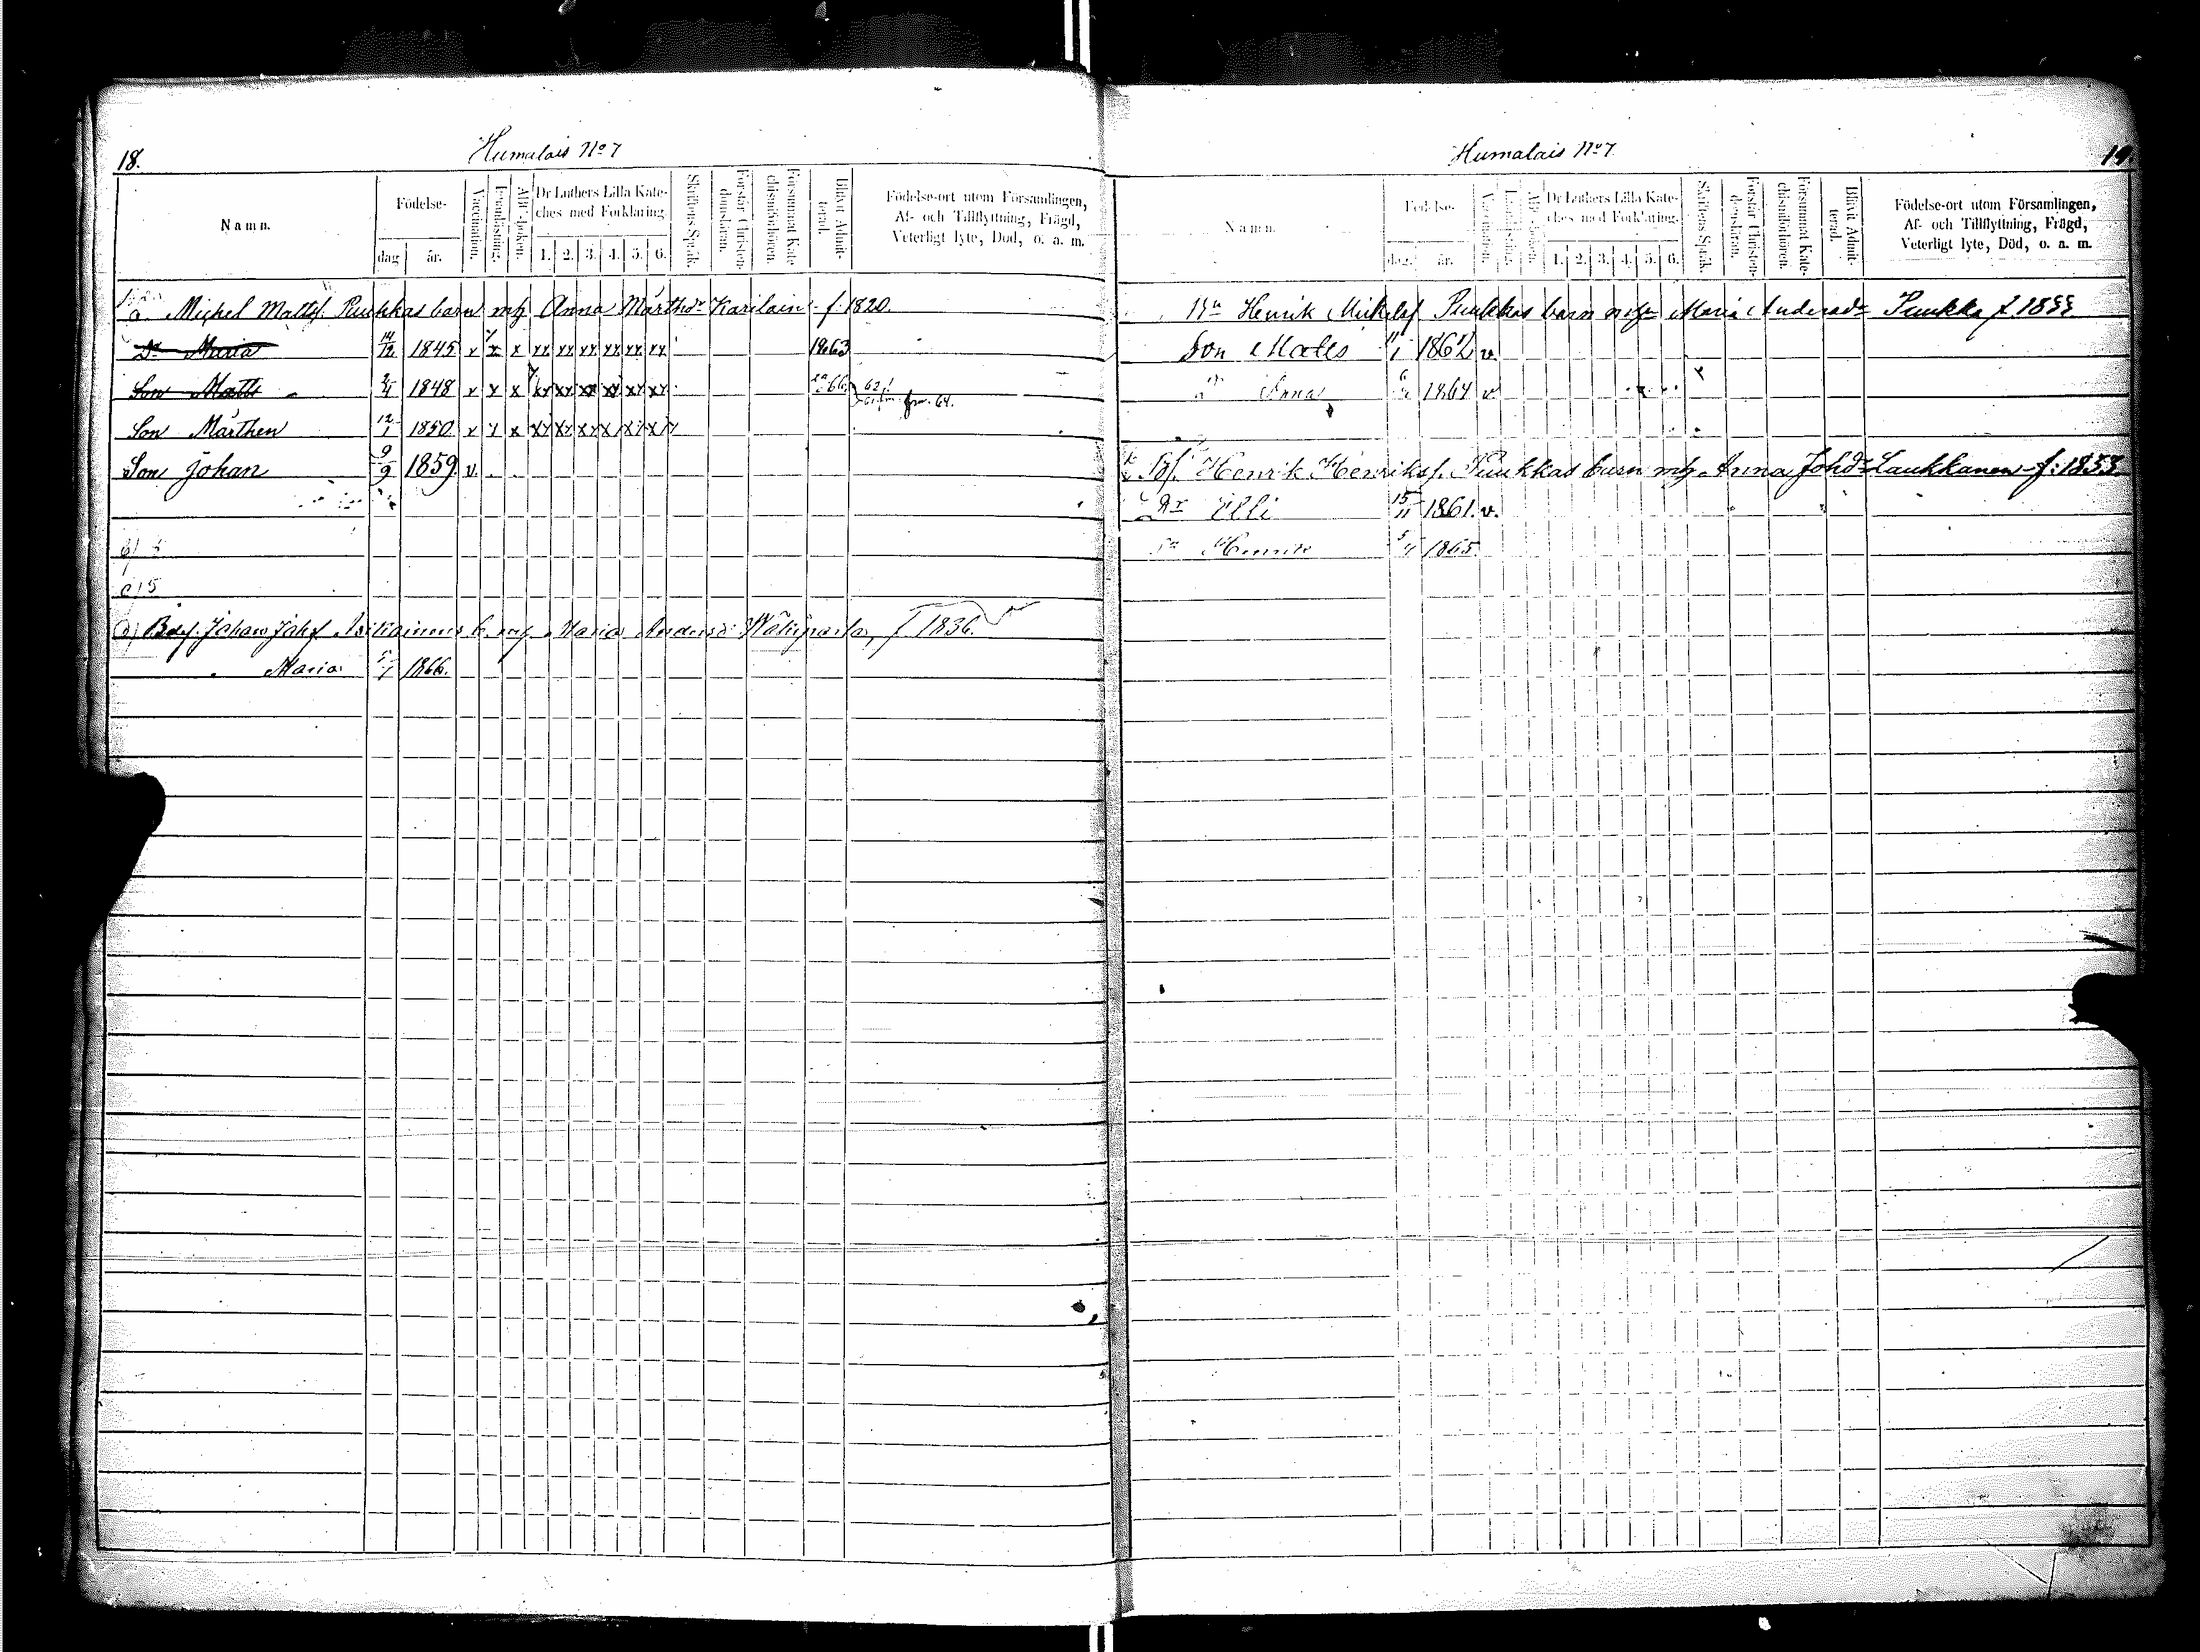 18.
Humalais No 7
Namn.
Födelse-
dag
år.
Vaccination.
Abc-boken.
Dr Luthers Lilla Kate-
ches med Förklaring.
1. 2. 3. 4. 5. 6.
Skriftens Språk.
Förstår Christen-
domsläran.
Försummat Kate-
chismiförhören.
Blifvit Admit-
terad.
Födelse-ort utom Församlingen,
Af- och Tillflyttning, Frägd,
Veterligt lyte, Död, o. a. m.
a Michel Mattsf. Puukkas barn mh Anna Mårthdr Karilain f. 1820.
Dr Maria 14/12 1845 v x x xx xx xx xx xx xx 1863
Son Matts 2/4 1848 v x x xx xx xx xx xx xx 66. frm. 64.
Son Mårthen 12/1 1850 v x x xx xx xx xx xx xx
Son Johan 9/9 1859 v.
b)
c)
d) Johan Johsf b. mh Maria Andersd: f 1836.
Maria 1866.
Humalais No 7.
19
Namn.
Födelse-
dag.
år.
Vaccination.
Abc-boken.
Dr Luthers Lilla Kate-
ches med Förklaring.
1. 2. 3. 4. 5. 6.
Skriftens Språk.
Förstår Christen-
domsläran.
Försummat Kate-
chismiförhören.
Blifvit Admit-
terad.
Födelse-ort utom Församlingen,
Af- och Tillflyttning, Frägd,
Veterligt lyte, Död, o. a. m.
Henrik Mickelsf Puukkas barn Maria Andersdr Puukka f
Son Matts 11/1 1862 v.
Anna 1864 v
Henrik Henriksf. Puukkas barn mh Anna Johdr Laukkanen f: 1833.
Dr Elli 15/11 1861. v.
Henrik 1865